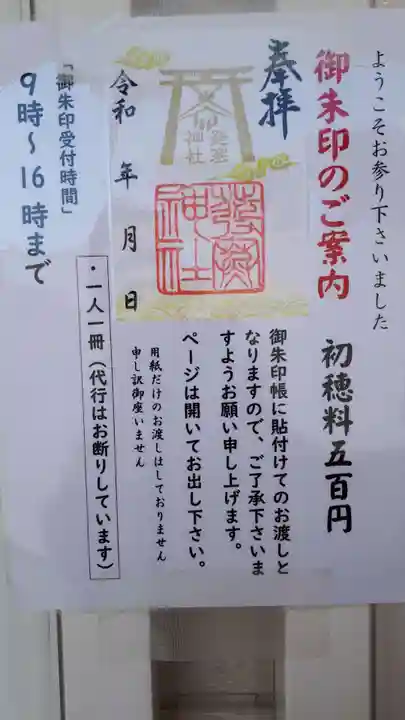 ようこそお参り下さいました
御朱印のご案内 初穂料五百円
奉拝
神社
令和 年 月 日
御朱印帳に貼付けてのお渡しと
なりますので、ご了承下さいま
すようお願い申し上げます。
ページは開いてお出し下さい。
用紙だけのお渡しはしておりません
申し訳御座いません
・一人一冊(代行はお断りしています)
「御朱印受付時間」
9時~16時まで